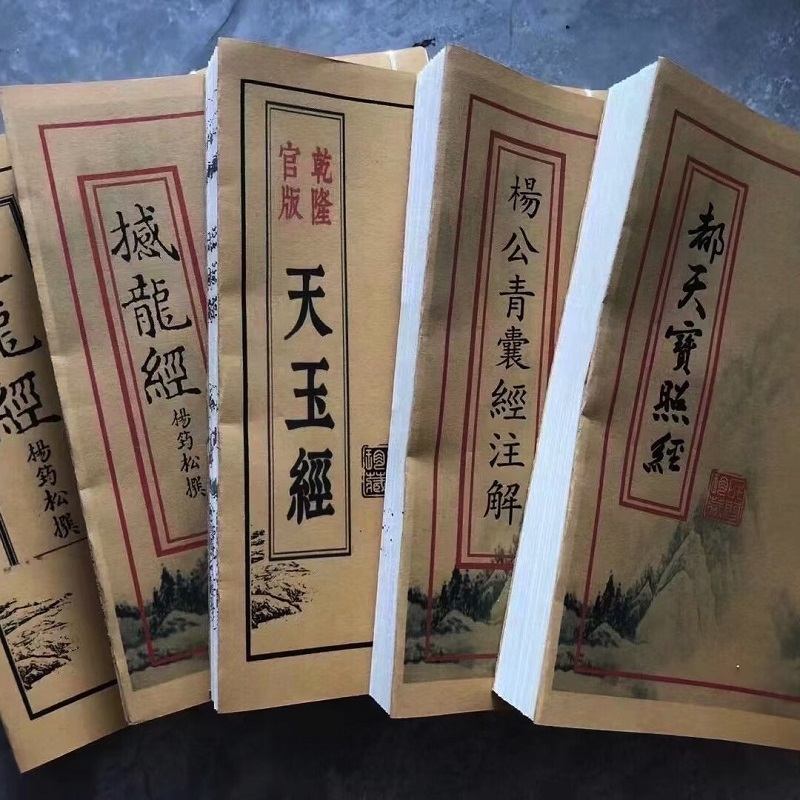 龍經
楊筠松撰
撼龍經
楊筠松撰
乾隆
官版
天玉經
珍藏
楊公青囊經注解
都天寶照經
珍藏